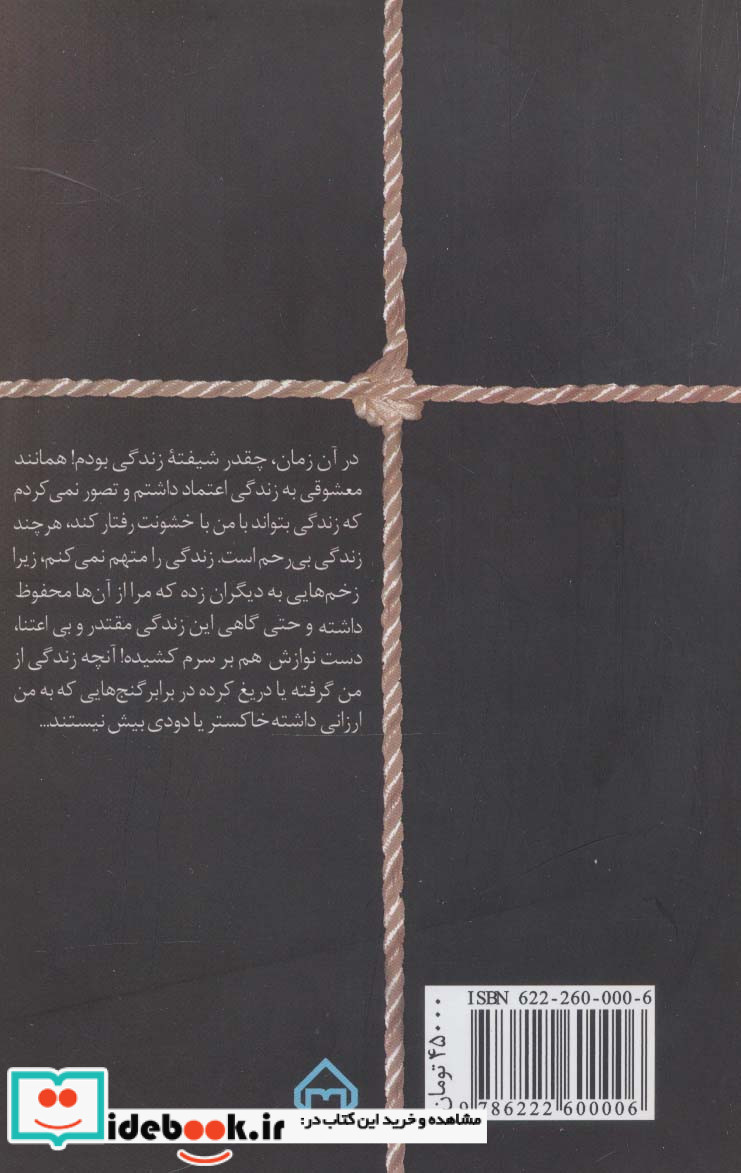 در آن زمان، چقدر شیفتهٔ زندگی بودم! همانند
معشوقی به زندگی اعتماد داشتم و تصور نمی‌کردم
که زندگی بتواند با من با خشونت رفتار کند، هرچند
زندگی بی‌رحم است. زندگی را متهم نمی‌کنم، زیرا
زخم‌هایی به دیگران زده که مرا از آن‌ها محفوظ
داشته و حتی گاهی این زندگی مقتدر و بی اعتنا،
دست نوازش هم بر سرم کشیده! آنچه زندگی از
من گرفته یا دریغ کرده در برابر گنج‌هایی که به من
ارزانی داشته خاکستر یا دودی بیش نیستند...
ISBN 622-260-000-6
۴۵۰۰۰ تومان
9 786222 600006
مشاهده و خرید این کتاب در:
idebook.ir